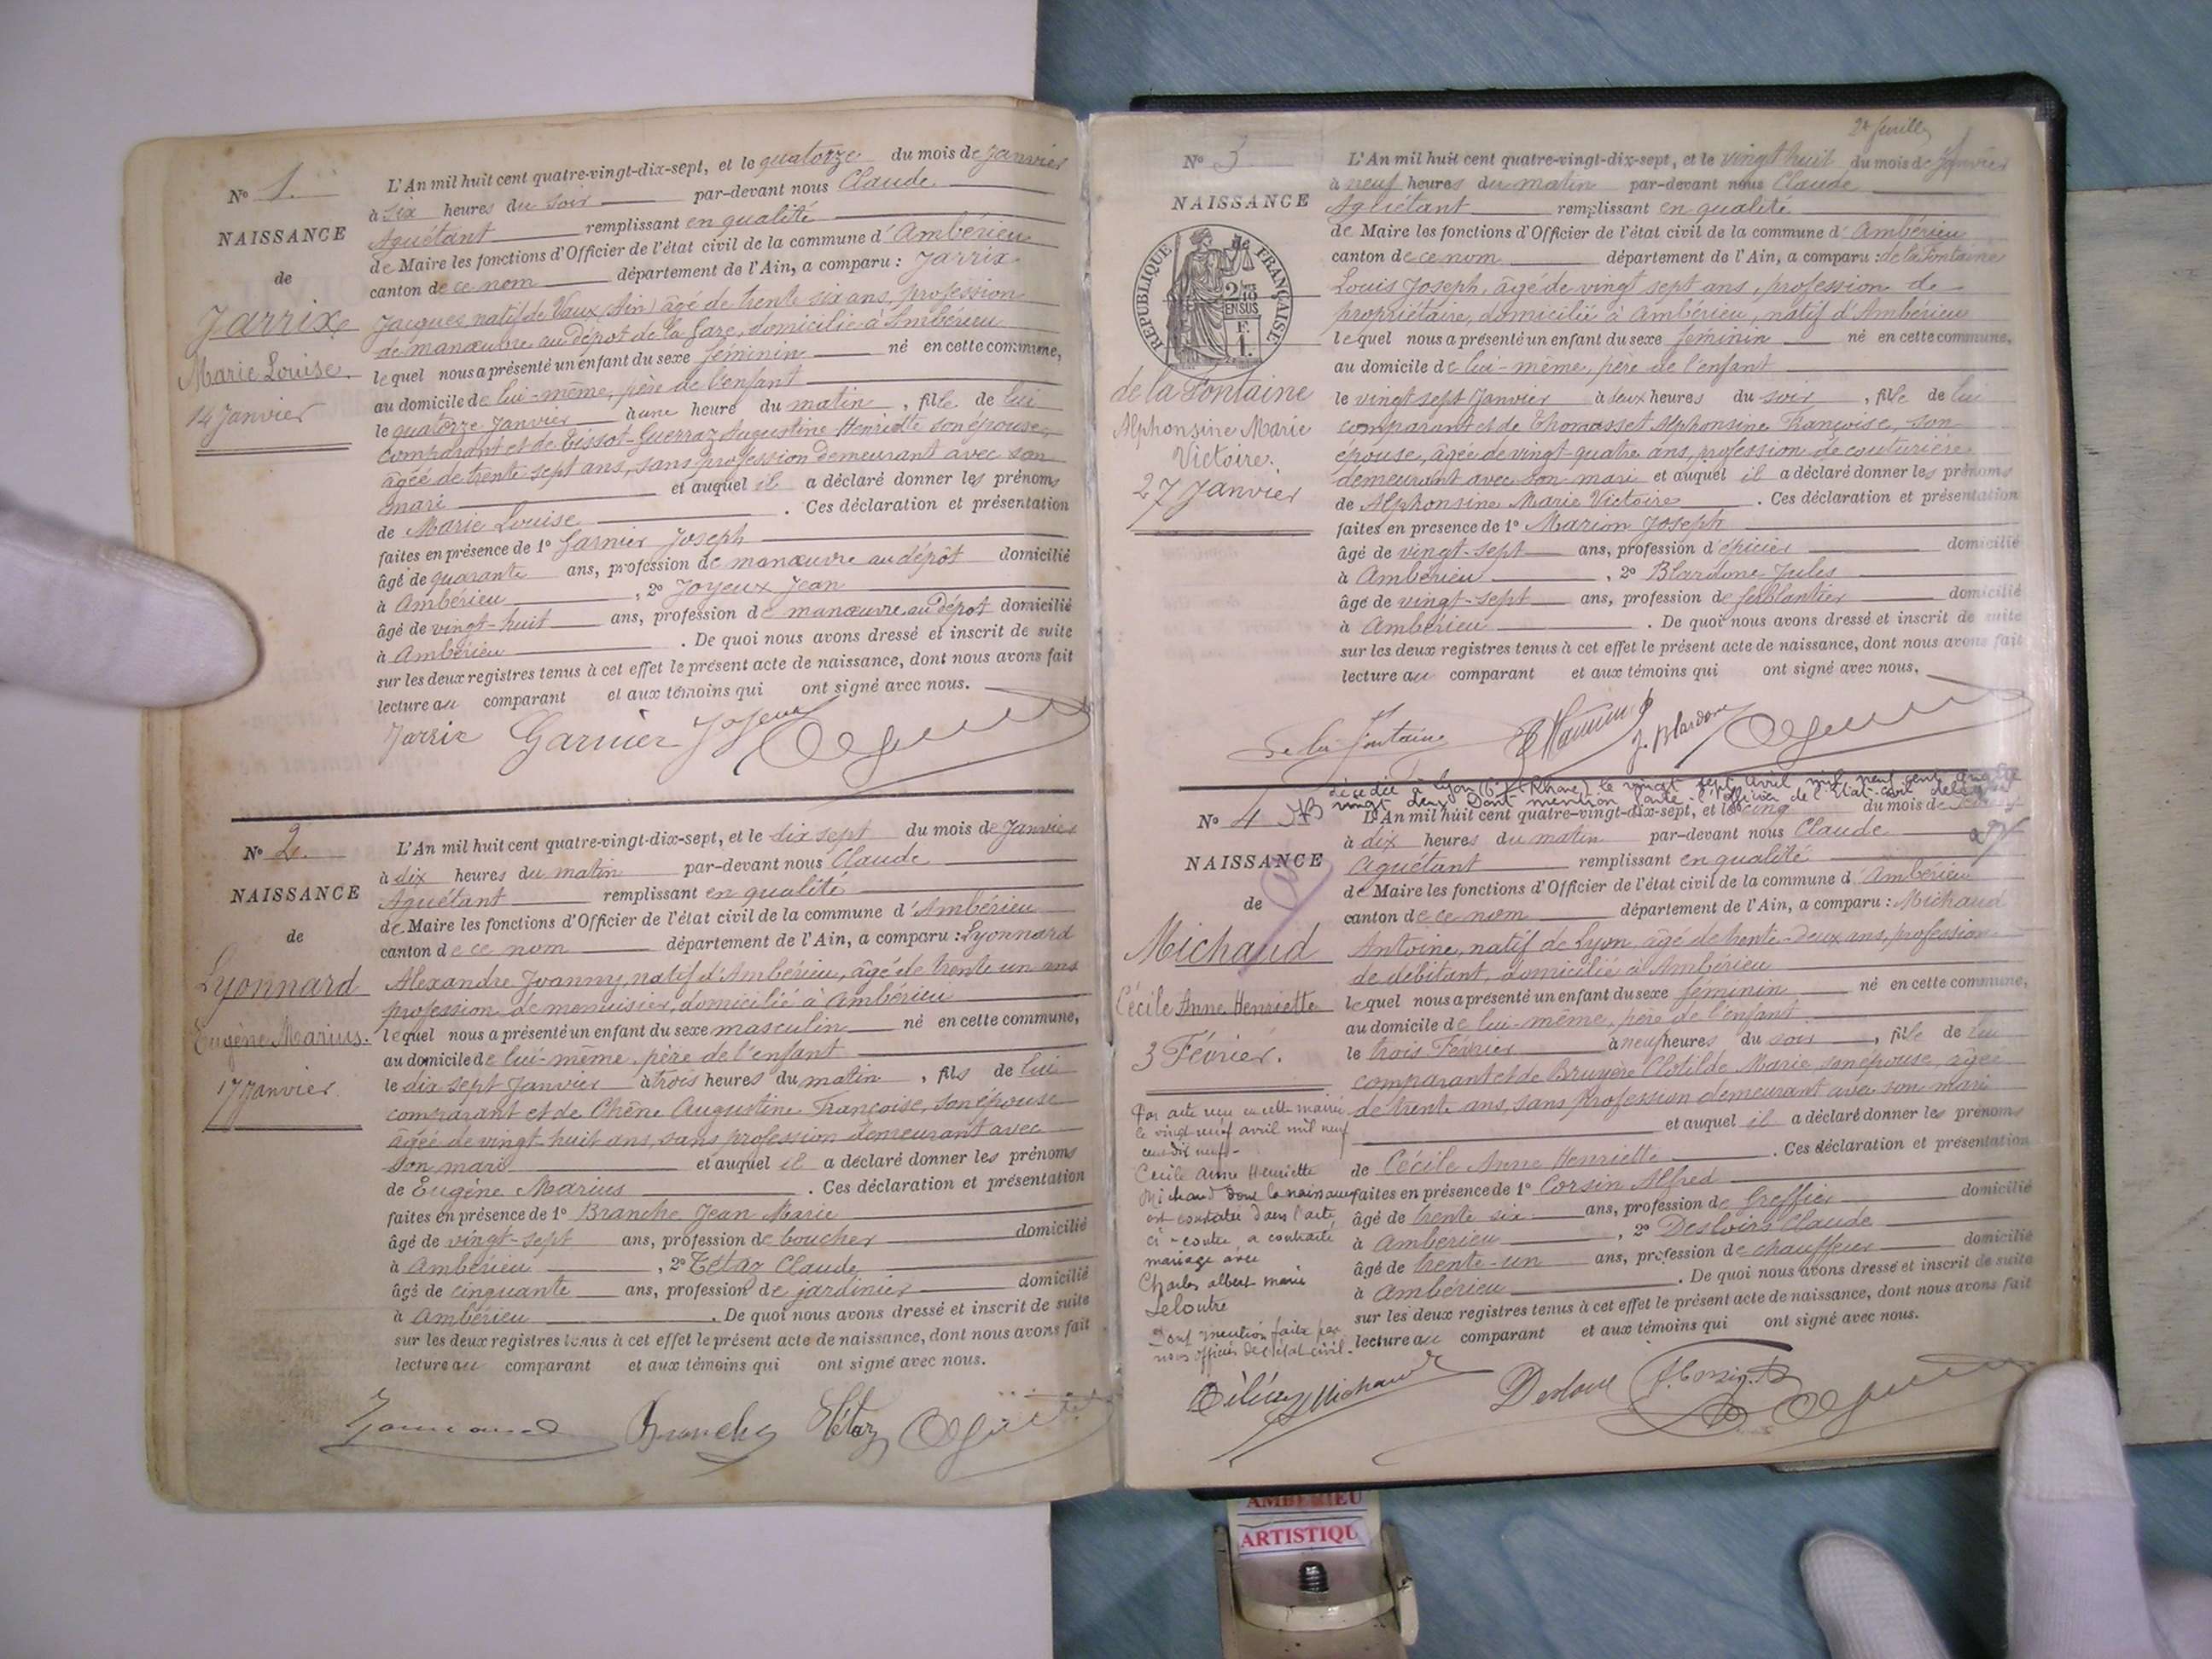 N° 1.
NAISSANCE
de
Jarrix
Marie Louise
14 Janvier
L'An mil huit cent quatre-vingt-dix-sept, et le quatorze du mois de Janvier
à six heures du soir par-devant nous Claude
Aguétant remplissant en qualité
de Maire les fonctions d'Officier de l'état civil de la commune d'Ambérieu
canton de ce nom département de l'Ain, a comparu : Jarrix
Jacques natif de Vaux (Ain) âgé de trente six ans, profession
de manœuvre au dépôt de la Gare, domicilié à Ambérieu
lequel nous a présenté un enfant du sexe féminin né en cette commune,
au domicile de lui-même, père de l'enfant
le quatorze Janvier à une heure du matin, fille de lui
comparant et de Tissot-Guerraz Augustine Henriette son épouse,
âgée de trente-sept ans, sans profession demeurant avec son
mari et auquel il a déclaré donner les prénoms
de Marie Louise. Ces déclaration et présentation
faites en présence de 1° Garnier Joseph
âgé de quarante ans, profession de manœuvre au dépôt domicilié
à Ambérieu, 2° Joyeux Jean
âgé de vingt-huit ans, profession de manœuvre au dépôt domicilié
à Ambérieu. De quoi nous avons dressé et inscrit de suite
sur les deux registres tenus à cet effet le présent acte de naissance, dont nous avons fait
lecture au comparant et aux témoins qui ont signé avec nous.
Jarrix Garnier Joyeux
N° 2.
NAISSANCE
de
Lyonnard
Eugène Marius.
17 Janvier
L'An mil huit cent quatre-vingt-dix-sept, et le dix sept du mois de Janvier
à dix heures du matin par-devant nous Claude
Aguétant remplissant en qualité
de Maire les fonctions d'Officier de l'état civil de la commune d'Ambérieu
canton de ce nom département de l'Ain, a comparu : Lyonnard
Alexandre Joanny, natif d'Ambérieu, âgé de trente un ans
profession de menuisier, domicilié à Ambérieu
lequel nous a présenté un enfant du sexe masculin né en cette commune,
au domicile de lui-même, père de l'enfant
le dix sept Janvier à trois heures du matin, fils de lui
comparant et de Chêne Augustine Françoise, son épouse
âgée de vingt-huit ans, sans profession demeurant avec
son mari et auquel il a déclaré donner les prénoms
de Eugène Marius. Ces déclaration et présentation
faites en présence de 1° Branche Jean Marie
âgé de vingt-sept ans, profession de boucher domicilié
à Ambérieu, 2° Tétaz Claude
âgé de cinquante ans, profession de jardinier domicilié
à Ambérieu. De quoi nous avons dressé et inscrit de suite
sur les deux registres tenus à cet effet le présent acte de naissance, dont nous avons fait
lecture au comparant et aux témoins qui ont signé avec nous.
Branche Tétaz
2e feuille
N° 3
NAISSANCE
REPUBLIQUE FRANÇAISE
de la Fontaine
Alphonsine Marie
Victoire.
27 Janvier
L'An mil huit cent quatre-vingt-dix-sept, et le vingt huit du mois de Janvier
à neuf heures du matin par-devant nous Claude
Aguétant remplissant en qualité
de Maire les fonctions d'Officier de l'état civil de la commune d'Ambérieu
canton de ce nom département de l'Ain, a comparu : de la Fontaine
Louis Joseph, âgé de vingt sept ans, profession de
propriétaire, domicilié à Ambérieu, natif d'Ambérieu
lequel nous a présenté un enfant du sexe féminin né en cette commune,
au domicile de lui-même, père de l'enfant
le vingt sept Janvier à deux heures du soir, fille de lui
comparant et de Thomasset Alphonsine Françoise, son
épouse, âgée de vingt-quatre ans, profession de couturière
demeurant avec son mari et auquel il a déclaré donner les prénoms
de Alphonsine Marie Victoire. Ces déclaration et présentation
faites en présence de 1° Marion Joseph
âgé de vingt-sept ans, profession d'épicier domicilié
à Ambérieu, 2° Blardone Jules
âgé de vingt-sept ans, profession de ferblantier domicilié
à Ambérieu. De quoi nous avons dressé et inscrit de suite
sur les deux registres tenus à cet effet le présent acte de naissance, dont nous avons fait
lecture au comparant et aux témoins qui ont signé avec nous.
de la Fontaine J. Blardone
décédée à Lyon (6e) (Rhône) le vingt sept avril mil neuf cent quatre
vingt deux Dont mention faite l'officier de l'Etat-civil
N° 4
NAISSANCE
de
Michaud
Cécile Anne Henriette
3 Février.
Par acte reçu en cette mairie
le vingt neuf avril mil neuf
cent dix neuf
Cécile Anne Henriette
Michaud dont la naissance
est constatée dans l'acte
ci-contre, a contracté
mariage avec
Charles albert marie
Leloutre
Dont mention faite par
nous officier de l'état civil.
L'An mil huit cent quatre-vingt-dix-sept, et le cinq du mois de Février
à dix heures du matin par-devant nous Claude
Aguétant remplissant en qualité
de Maire les fonctions d'Officier de l'état civil de la commune d'Ambérieu
canton de ce nom département de l'Ain, a comparu : Michaud
Antoine, natif de Lyon, âgé de trente-deux ans, profession
de débitant, domicilié à Ambérieu
lequel nous a présenté un enfant du sexe féminin né en cette commune,
au domicile de lui-même, père de l'enfant
le trois Février à neuf heures du soir, fille de lui
comparant et de Bruyère Clotilde Marie, son épouse, âgée
de trente ans, sans profession demeurant avec son mari
et auquel il a déclaré donner les prénoms
de Cécile Anne Henriette. Ces déclaration et présentation
faites en présence de 1° Corsin Alfred
âgé de trente six ans, profession de Greffier domicilié
à Ambérieu, 2° Desloirs Claude
âgé de trente-un ans, profession de chauffeur domicilié
à Ambérieu. De quoi nous avons dressé et inscrit de suite
sur les deux registres tenus à cet effet le présent acte de naissance, dont nous avons fait
lecture au comparant et aux témoins qui ont signé avec nous.
Michaud
AMBERIEU
ARTISTIQU